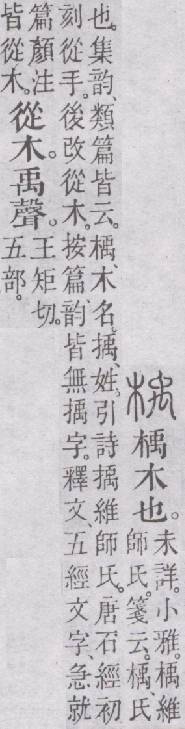 楀 楀木也。
未詳。小雅。楀維
師氏。箋云。楀、氏
也。集韵、類篇皆云。楀、木名。姓。引詩維師氏。唐石經初
刻從手。後改從木。按篇、韵皆無字。釋文、五經文字、急就
篇顏注
皆從木。
從木。禹聲。
王矩切。
五部。